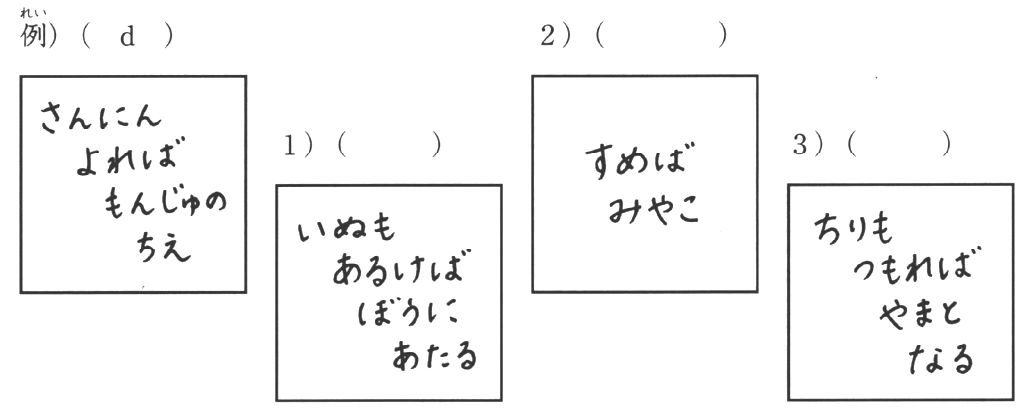 例（れい）) ( d )
さんにん
よれば
もんじゅの
ちえ
1) ( )
いぬも
あるけば
ぼうに
あたる
2) ( )
すめば
みやこ
3) ( )
ちりも
つもれば
やまと
なる